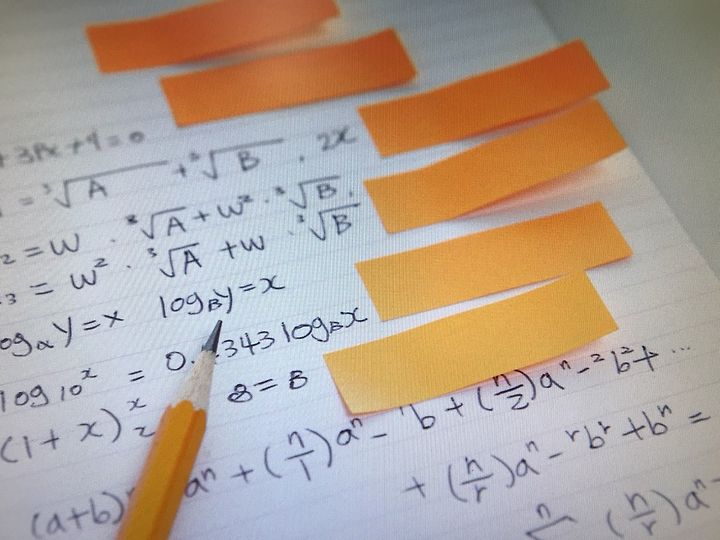 + 3Px + q = 0
= ³√A + ³√B . 2x
₂ = W . ³√A + W² . ³√B.
₃ = W² . ³√A + W . ³√B
ogₐy = x log_B y = x
log 10ˣ = 0. 343 log_B x
(1 + x) 8 = B
(a+b) aⁿ + (n/1) aⁿ - ¹b + (n/2) aⁿ - ²b² + ...
+ (n/r) aⁿ - ʳbʳ + bⁿ =
n (n/r) aⁿ -